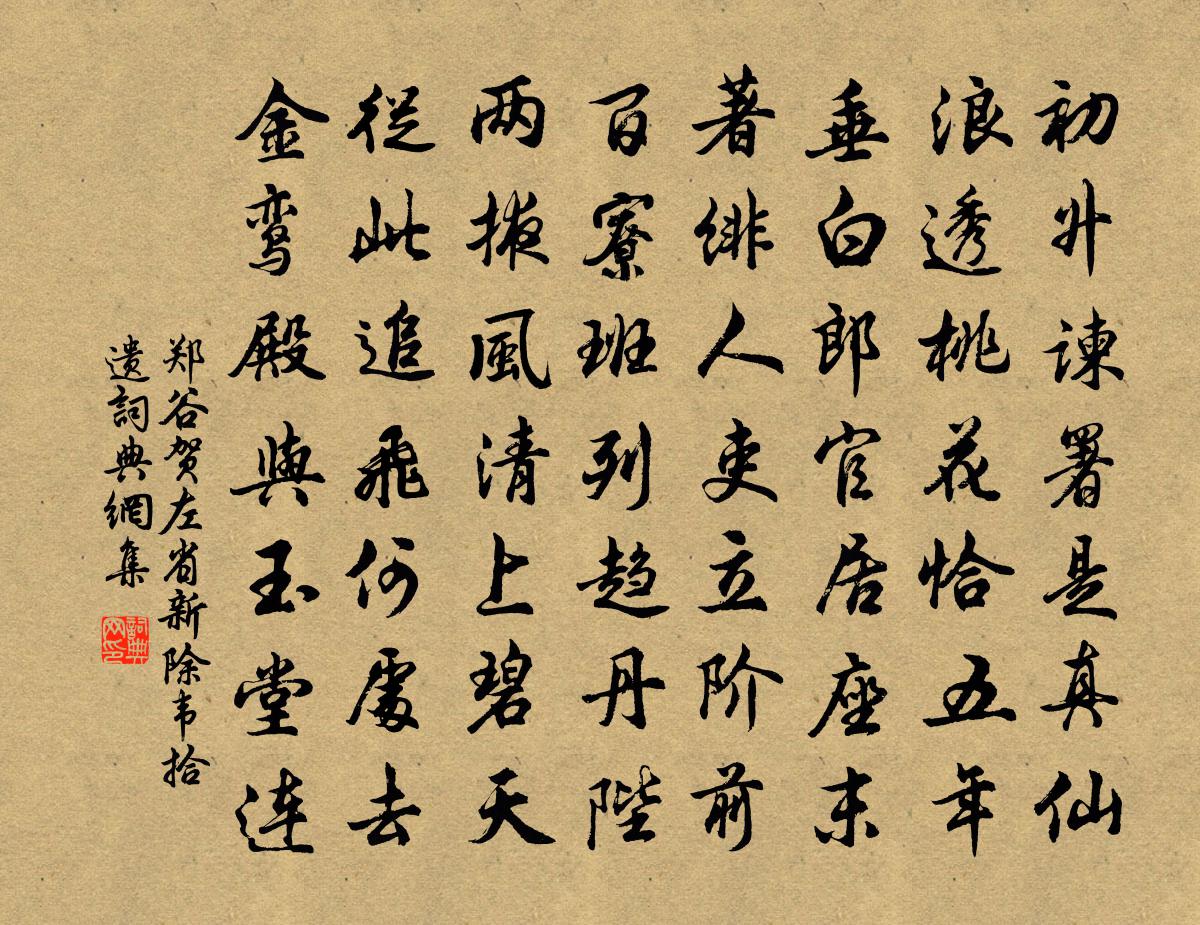 初升諫署是真仙
浪透桃花恰五年
垂白郎官居座末
著緋人吏立阶前
百寮班列趋丹陛
两掖風清上碧天
從此追飛何處去
金鸾殿與玉堂连
郑谷贺左省新除韦拾
遗詞典網集
詞典
网印